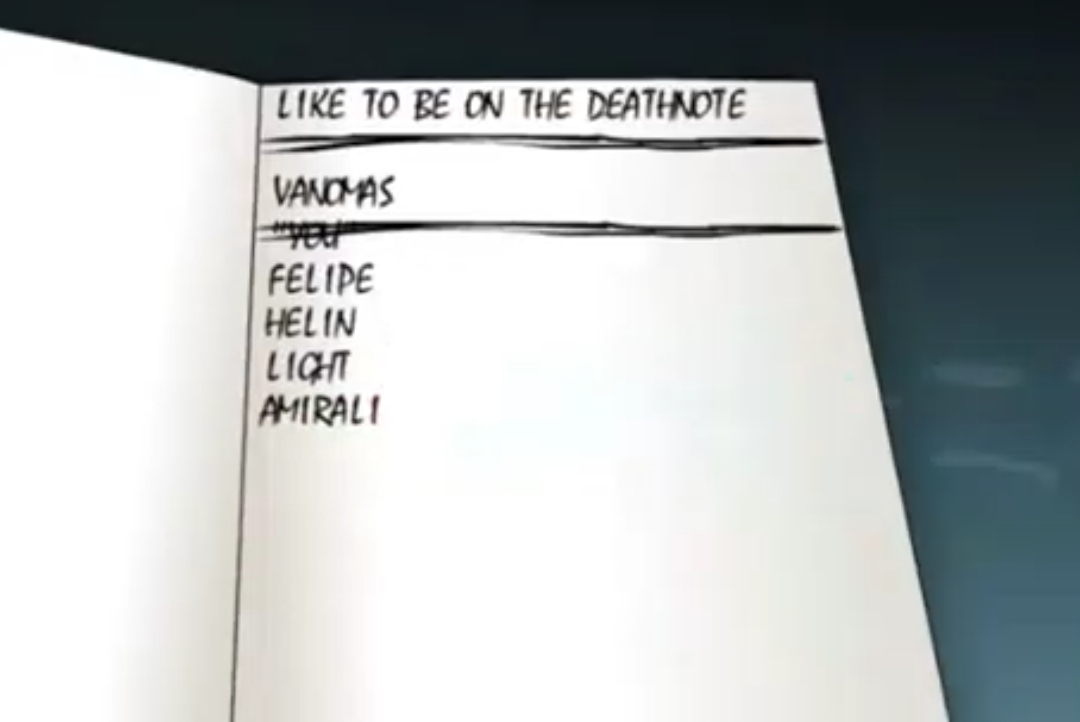 LIKE TO BE ON THE DEATHNOTE
VANOMAS
"YOU"
FELIPE
HELIN
LIGHT
AMIRALI